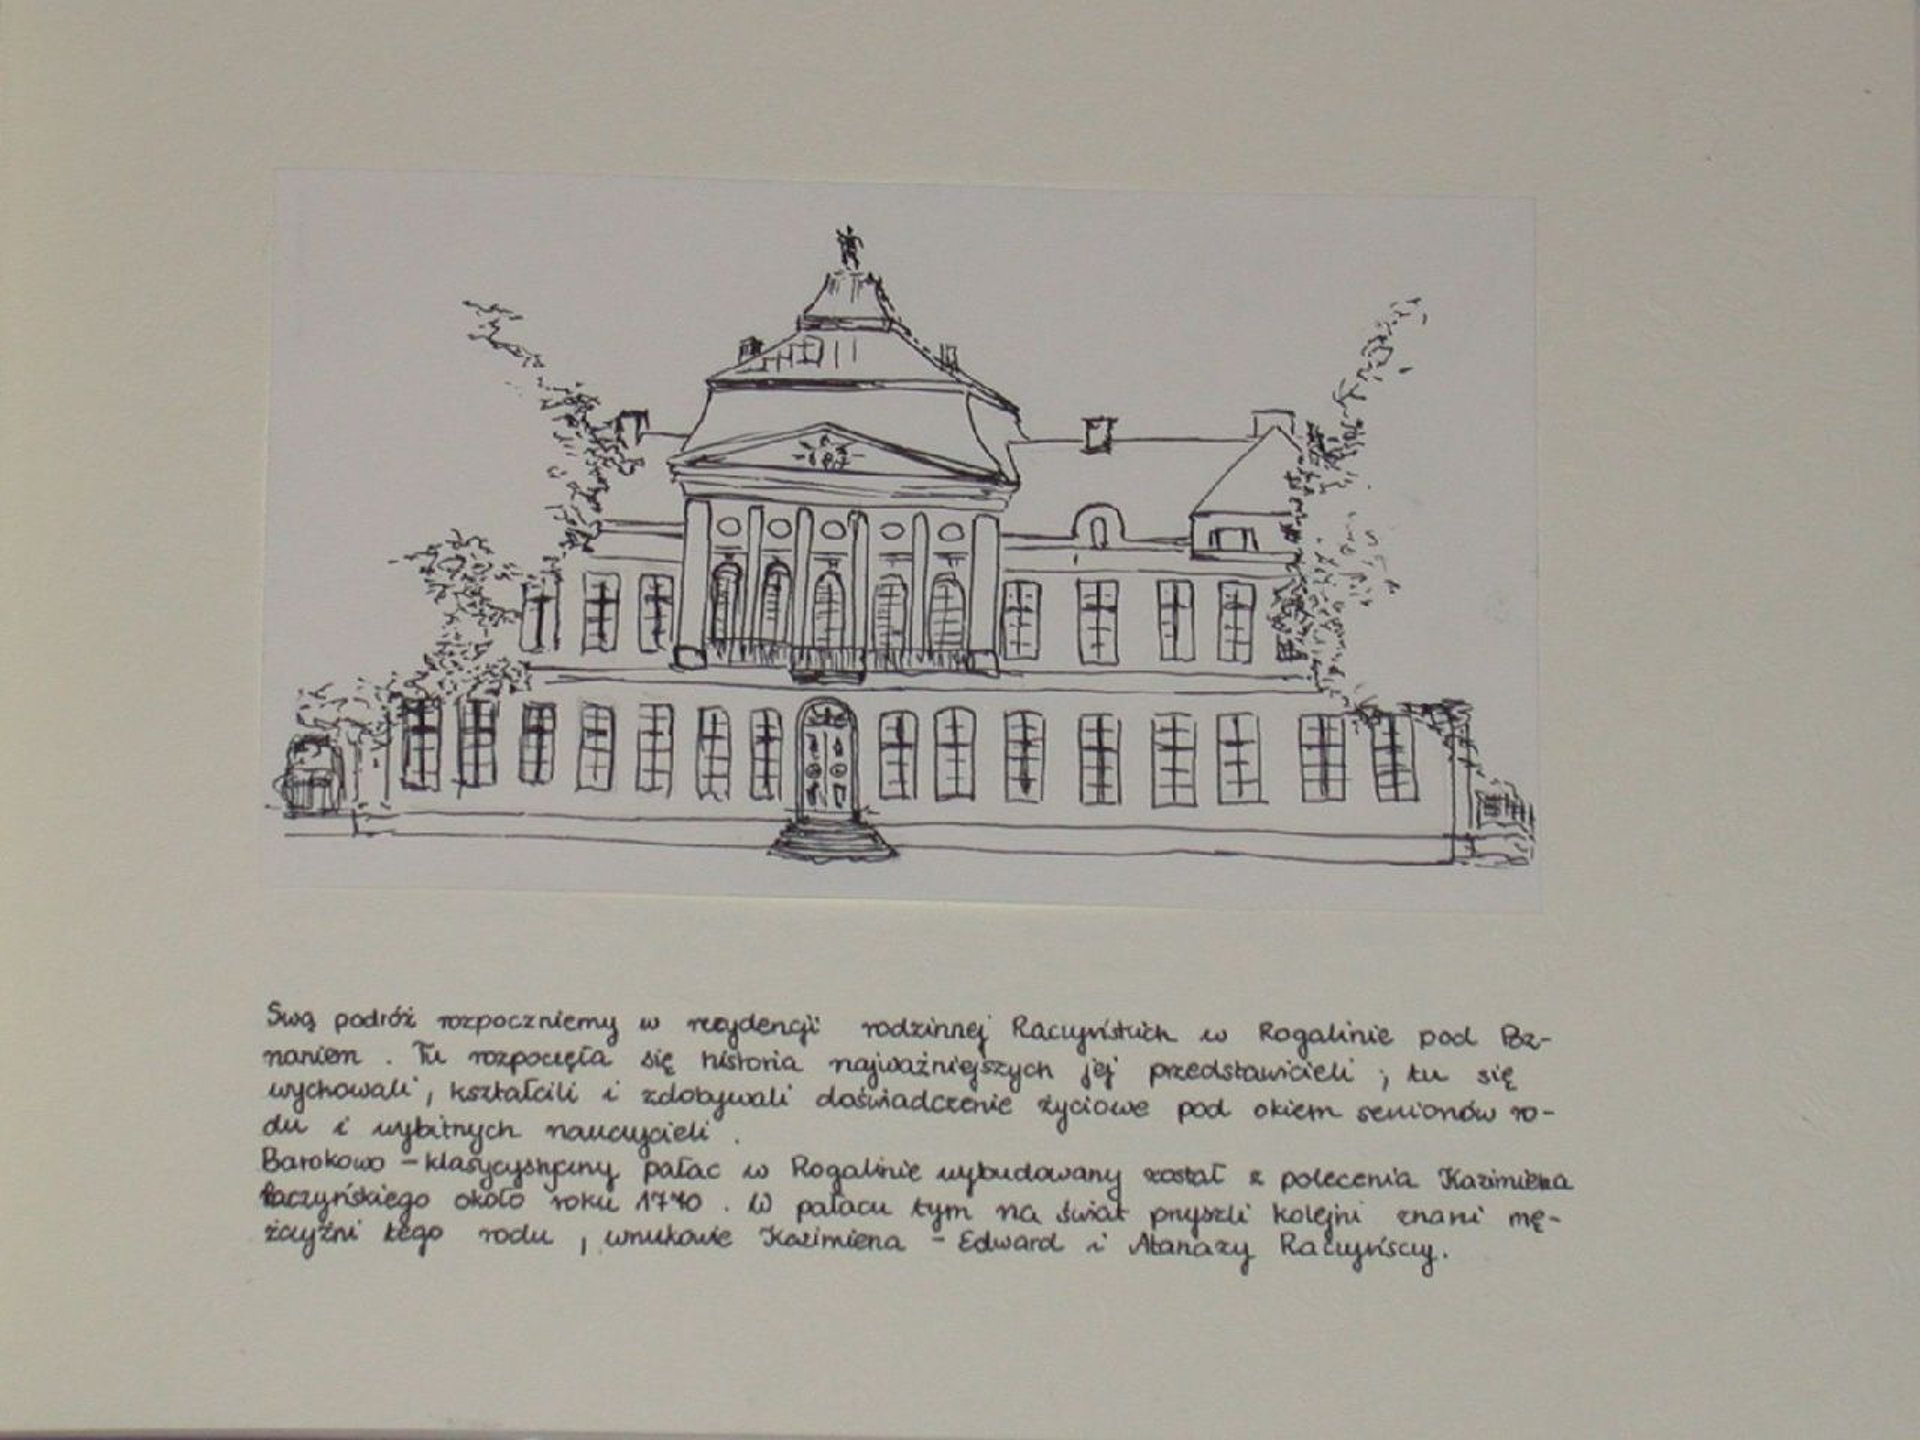 Swą podróż rozpoczniemy w rezydencji rodzinnej Raczyńskich w Rogalinie pod Poz-
naniem. Tu rozpoczęła się historia najważniejszych jej przedstawicieli, tu się
wychowali, kształcili i zdobywali doświadczenie życiowe pod okiem seniorów ro-
du i wybitnych nauczycieli.
Barokowo-klasycystyczny pałac w Rogalinie wybudowany został z polecenia Kazimierza
Raczyńskiego około roku 1770. W pałacu tym na świat przyszli kolejni znani mę-
żczyźni tego rodu, wnukowie Kazimierza - Edward i Atanazy Raczyńscy.